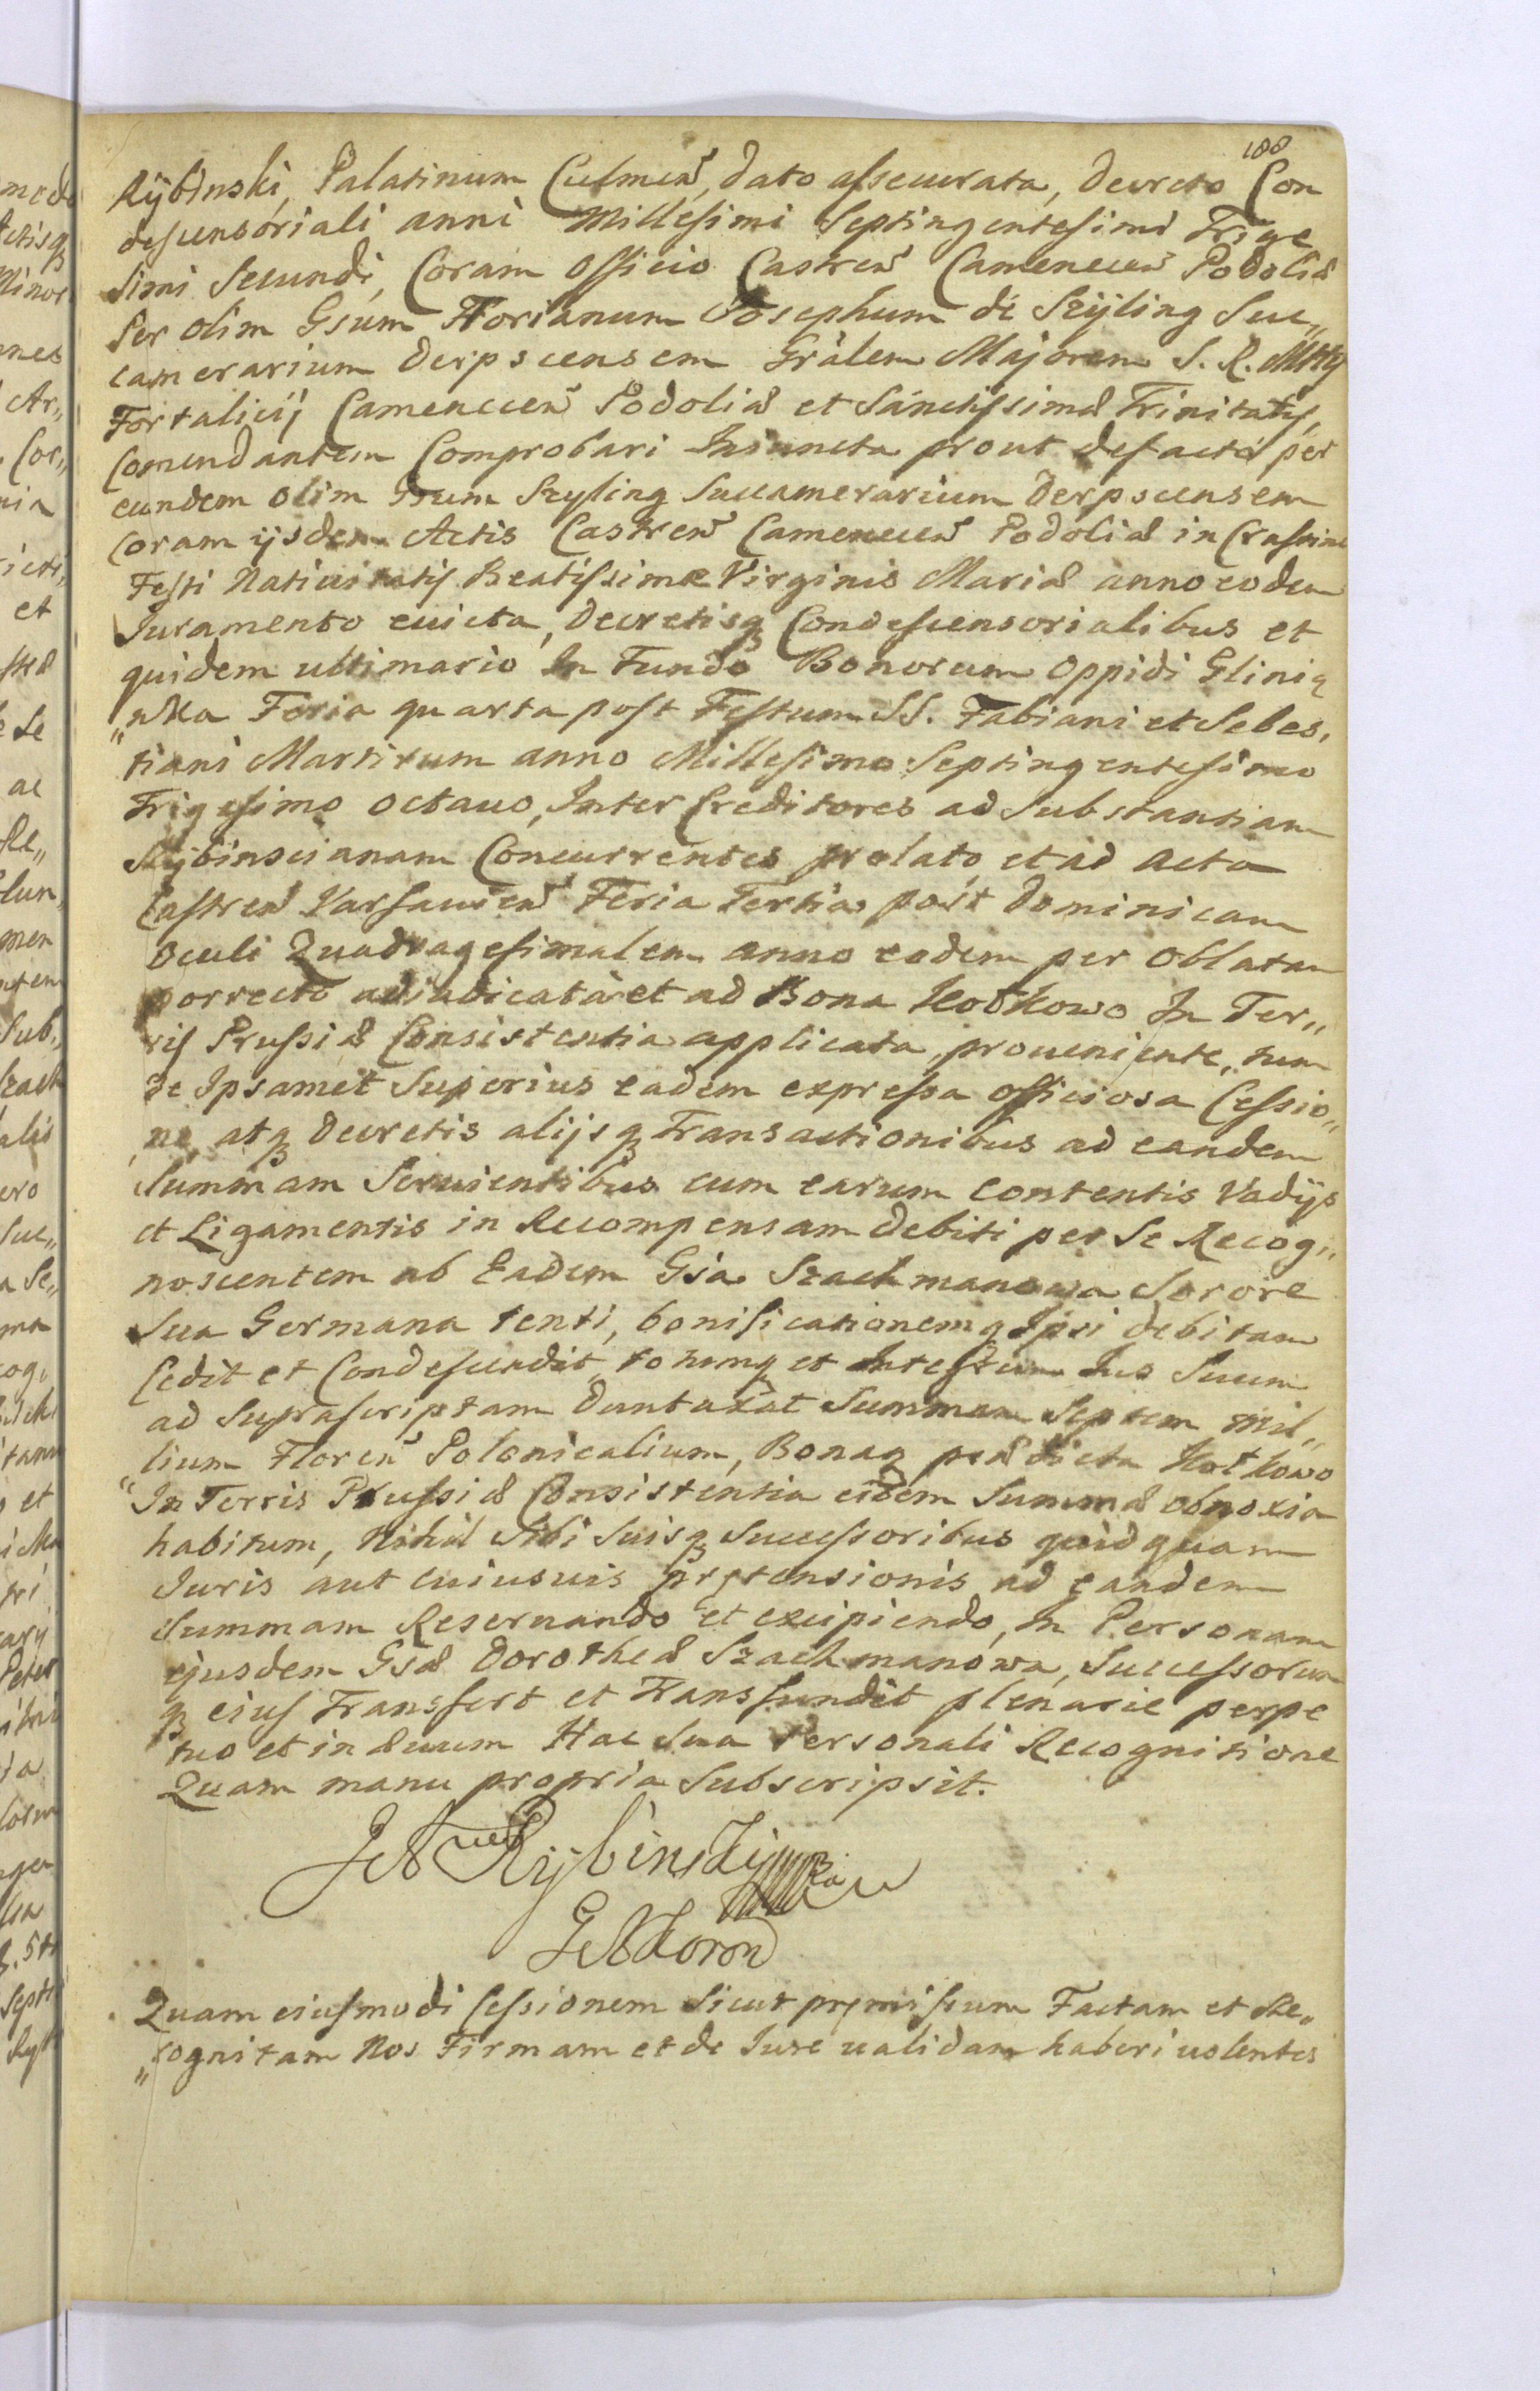 108
Rÿbinski, Palatinum Culmen̄, dato assecurata, Decreto Con
descensoriali anni Millesimi Septingentesimi Trige
simi Secundi, Coram Officio Castren̄ Camenecen̄ Podoliæ
Per olim Gsum Florianum Josephum de Szÿling Suc„
camerarium Derpscensem Gralem Majorem S. R. Mttis
Fortalicij Camenecen̄ Podoliæ et Sanctissimæ Trinitatis,
Comendantem Comprobari Iniuncta prout defacto per
eundem olim Gsum Szyling Succamerarium Derpscensem
Coram ijsdem Actis Castren̄ Camenecen̄ Podoliæ in Crastino
Festi Nativitatis Beatissimæ Virginis Mariæ anno eodem
Juramento euicta, Decretisq̃ Condescensorialibus et
quidem ultimario In Fundo Bonorum Oppidi Glinia
„nka Feria quarta post Festum SS. Fabiani et Sebes,
tiani Martirum anno Millesimo Septingentesimo
Trigesimo octauo, Inter Creditores ad Substantiam
Rÿbinscianam Concurrentes prolato, et ad Acta
Castren̄ Varsauien̄ Feria Tertia post Dominicam
Oculi Quadragesimalem anno eodem per Oblatam
porrecto adiudicata et ad Bona Kotkowo In Ter„
ris Prussiæ Consistentia applicata, proueniente, tum
de Ipsamet Superius eadem expressa officiosa Cessio„
ne, atq̃ Decretis alijsq̃ Transactionibus ad eandem
Summam Seruientibus cum earum Contentis Vadijs
et Ligamentis in Recompensam Debiti per Se Recog„
noscentem ab Eadem Gsa Szachmanowa Sorore
Sua Germana tenti, bonificationemq̃ Ipsi debitam
Cedit et Condescendit, totumq̃ et Integrum Jus Suum
ad Suprascriptam Duntaxat Summam Septem Mil„
„lium Floren̄ Polonicalium, Bonaq̃ prædicta Kotkowo
In Terris Prussiæ Consistentia eidem Summæ obnoxia
habitum, Nihil Sibi Suisq̃ Successoribus quidquam
Juris aut cuiusuis prętensionis ad eandem
Summam Reseruando et excipiendo, In Personam
ejusdem Gsæ Dorotheæ Szachmanowa, Successorum
q̃ eius Transfert et Transfundit plenarie perpe
tuo et in æuum Hac Sua Personali Recognitione
Quam manu propria Subscripsit.
Rÿbinskÿ
Quam eiusmodi Cessionem Sicut pręmissum Factam et Re„
„cognitam Nos Firmam et de Jure ualidam haberi uolentes